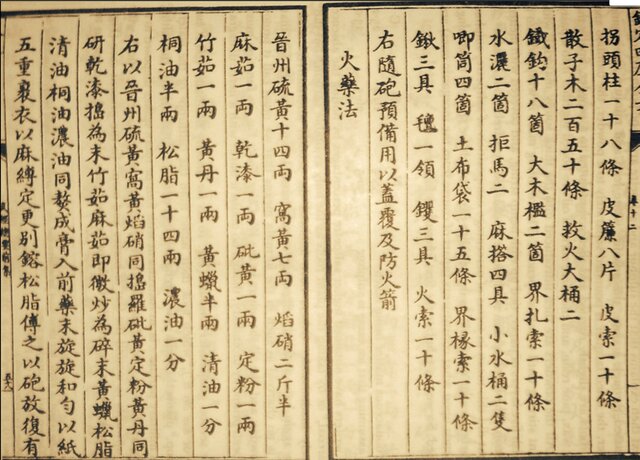 卷十二
拐頭柱一十八條 皮簾八片 皮索一十條
散子木二百五十條 救火大桶二
鐵鈎十八箇 大木檻二箇 界扎索一十條
水灑二箇 拒馬二 麻搭四具 小水桶二隻
唧筒四箇 土布袋一十五條 界椽索一十條
鍬三具 氊一領 钁三具 火索一十條
右隨砲預備用以蓋覆及防火箭
火藥法
晉州硫黃十四兩 窩黃七兩 焰硝二斤半
麻茹一兩 乾漆一兩 砒黃一兩 定粉一兩
竹茹一兩 黃丹一兩 黃蠟半兩 清油一分
桐油半兩 松脂一十四兩 濃油一分
右以晉州硫黃窩黃焰硝同搗羅砒黃定粉黃丹同
研乾漆搗為末竹茹麻茹即微炒為碎末黃蠟松脂
清油桐油濃油同熬成膏入前藥末旋旋和勻以紙
五重裹衣以麻縛定更別鎔松脂傅之以砲放復有